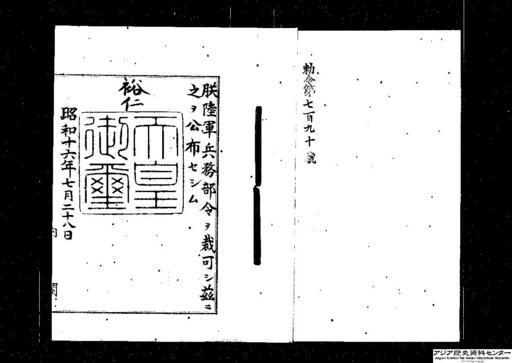 勅令第七百九十號
朕陸軍兵務部令ヲ裁可シ茲ニ
之ヲ公布セシム
裕仁
天皇
御璽
昭和十六年七月二十八日
内閣
アジア歴史資料センター
Japan Center for Asian Historical Records